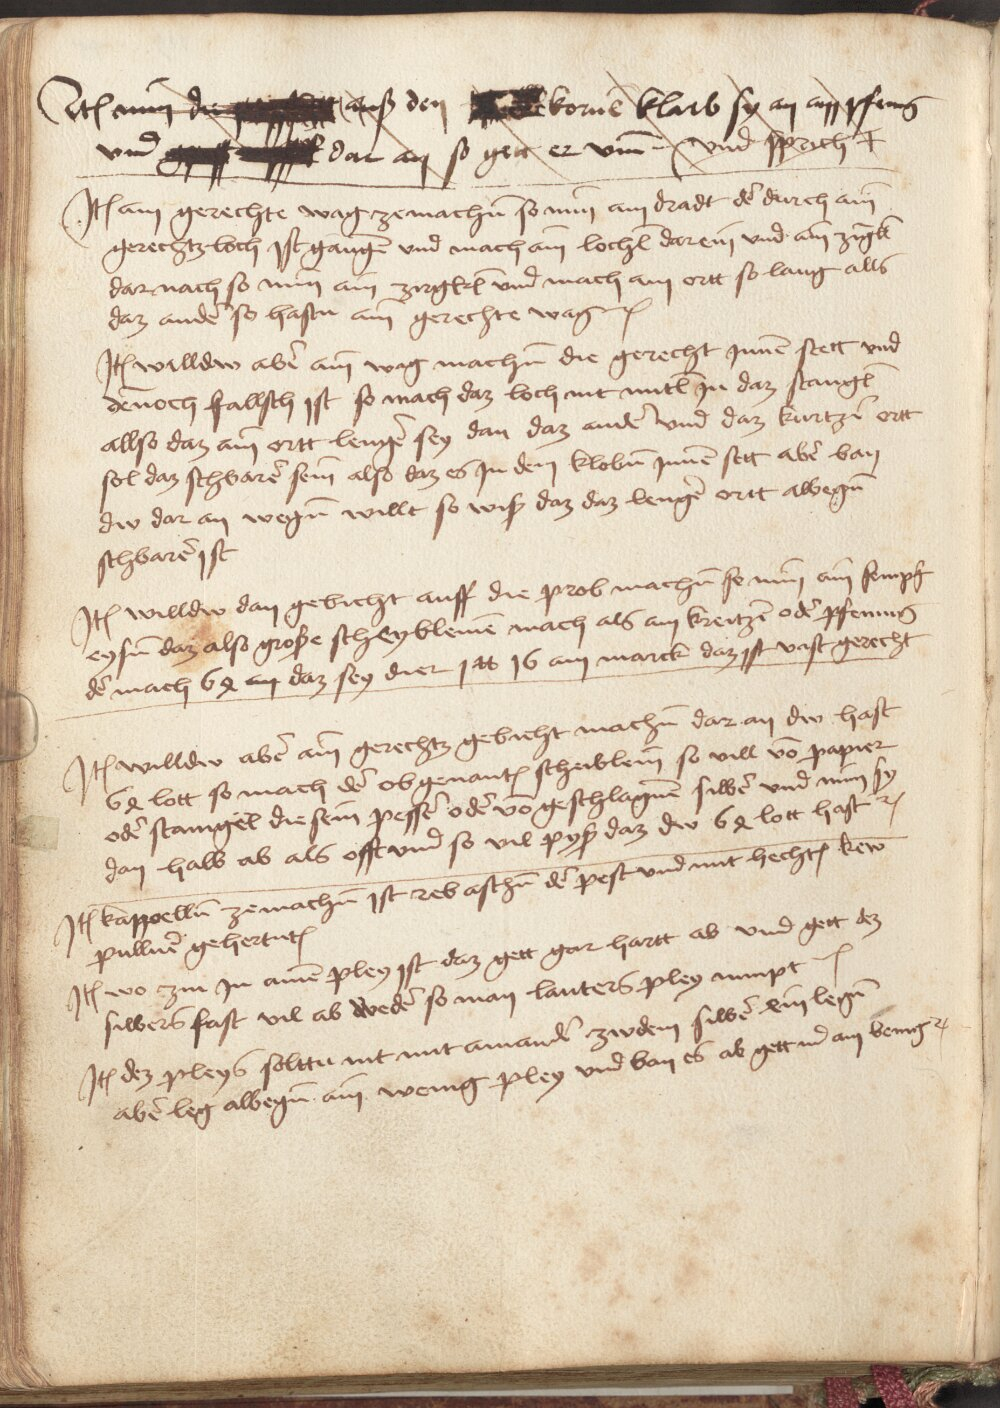 Itē nim die auß den kornē klaib sy an ain pfening
vnd dar an so gett er vmb vnd sprich †
Itē ain gerechte wag ze machn̄ so nim ain dradt dē durch ain
gerechtz loch ist gangē vnd mach ain lochl̄ darein vnd ain zingl̄
dar nach so nim ain zirgkl̄ vnd mach ain ortt so lang alls
daz andē so hastu ain gerechte wag
Itē willdw abē ain wag machn̄ die gerecht Innē stett vnd
dēnoch fallsch ist so mach daz loch nit mitl̄ In daz stangl̄
allso daz ain ortt lengē sey dan daz andē vnd daz kurtzē ortt
sol daz schbarē sein also daz es In den klobn̄ Innē stett abē ban
dw dar an wegn̄ willt so wiß daz daz lengē ortt albegn̄
schbarē ist
Itē willdw dan gebicht auff die prob machn̄ so nim ain sempf
eysn̄ daz also große scheyblein mach als ain kreitzē odē pfening
dē mach 64 daz sey dier 1 16 ain marck daz ist vast gerecht
Itē willdw abē ain gerechtz gebicht machn̄ dar an dw hast
64 lott so mach dē obgenantē scheiblein so vill vō papier
odē stanigel die sein pessē odē vō geschlagnē silbē vnd nim sy
dan halb ab als offt vnd so vil pyß daz dw 64 lott hast
Itē kappelln̄ ze machn̄ ist reb aschn̄ dē pest vnd mit hechtē kew
pulluē gehertnt
Itē wo zin In ainē pley ist daz gett gar hartt ab vnd gett dez
silbers fast vil ab wedē so man lauters pley nimpt
Itē dez pleys solttu nit mit ainandē zw dem silbē ein legn̄
abē leg albegn̄ ain wenig pley vnd ban es ab gett ain benig